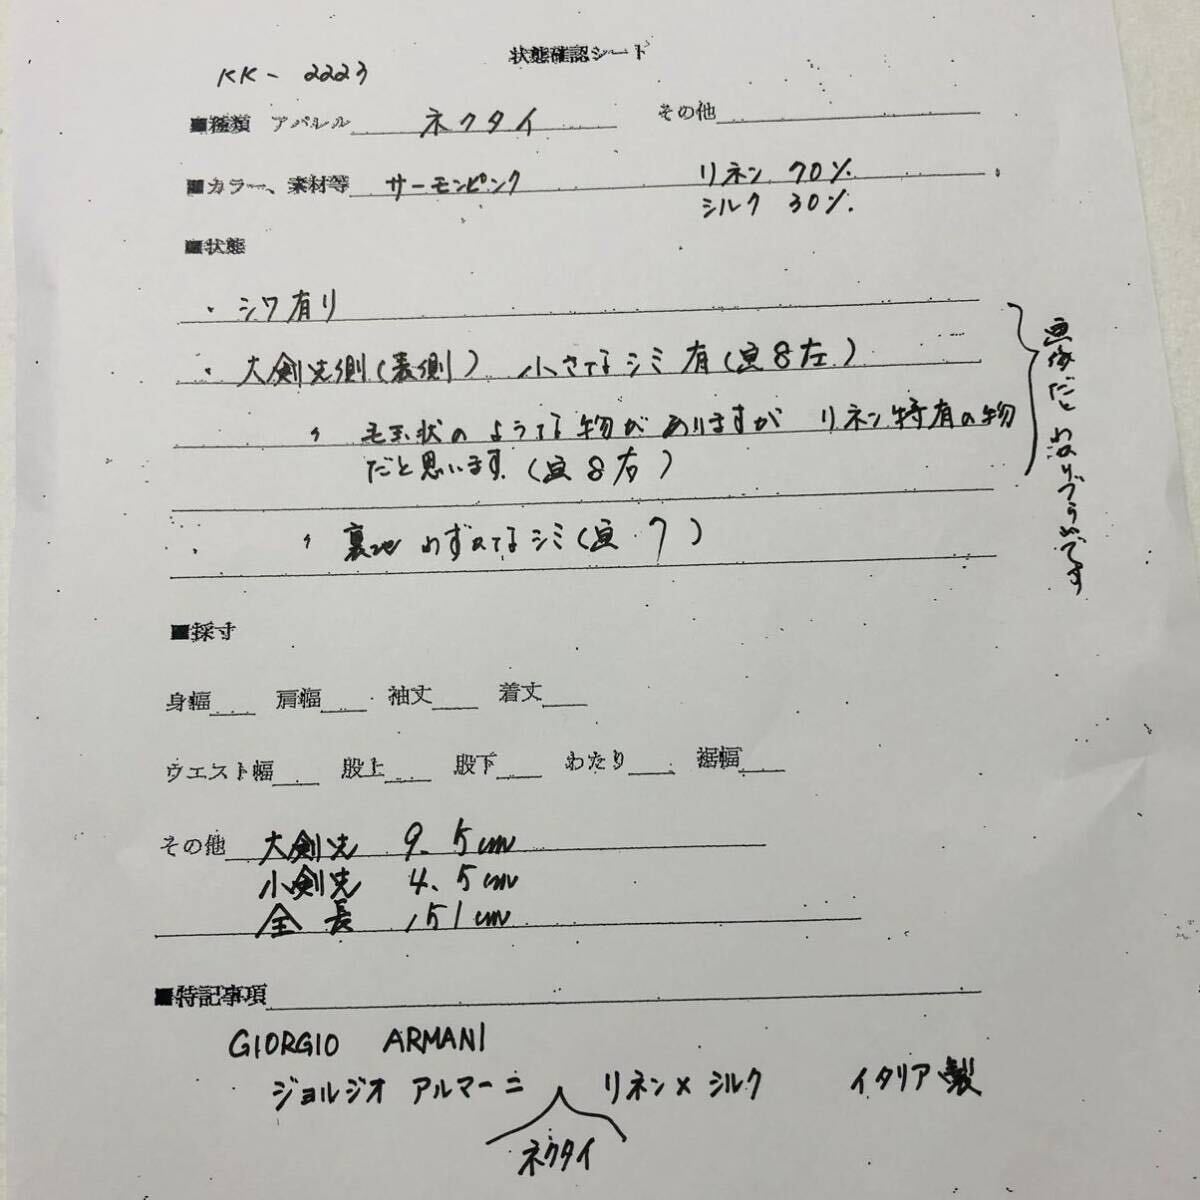 状態確認シート
KK- 2223
■種類 アパレル ネクタイ その他
■カラー、素材等 サーモンピンク リネン 70%
シルク 30%.
■状態
・シワ有り
・大剣先側(表側) 小さなシミ有(画8左)
〃 毛玉状のような物がありますが リネン特有の物
だと思います。(画8右)
・ 〃 裏地 わずかなシミ(画 7)
画像だとわかりづらいです
■採寸
身幅 肩幅 袖丈 着丈
ウエスト幅 股上 股下 わたり 裾幅
その他 大剣先 9.5cm
小剣先 4.5cm
全長 151cm
■特記事項
GIORGIO ARMANI
ジョルジオ アルマーニ リネン×シルク イタリア製
ネクタイ